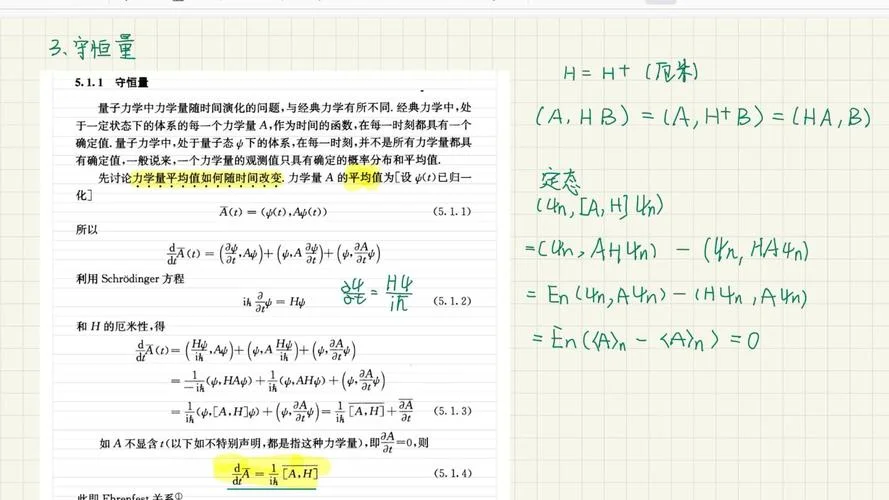 3、守恒量
5.1.1 守恒量
量子力学中力学量随时间演化的问题,与经典力学有所不同. 经典力学中,处
于一定状态下的体系的每一个力学量 A,作为时间的函数,在每一时刻都具有一个
确定值. 量子力学中,处于量子态 ψ 下的体系,在每一时刻,并不是所有力学量都具
有确定值,一般说来,一个力学量的观测值只具有确定的概率分布和平均值.
先讨论力学量平均值如何随时间改变. 力学量 A 的平均值为[设 ψ(t)已归一
化]
A̅(t) = (ψ(t),Aψ(t)) (5.1.1)
所以
d/dt A̅(t) = (∂ψ/∂t,Aψ)+(ψ,A ∂ψ/∂t)+(ψ,∂A/∂t ψ)
利用 Schrödinger 方程
iℏ ∂/∂t ψ = Hψ (5.1.2)
∂ψ/∂t = Hψ/iℏ
和 H 的厄米性,得
d/dt A̅(t) = (Hψ/iℏ,Aψ)+(ψ,A Hψ/iℏ)+(ψ,∂A/∂t ψ)
= 1/-iℏ (ψ,HAψ)+ 1/iℏ (ψ,AHψ)+(ψ,∂A/∂t ψ)
= 1/iℏ (ψ,[A,H]ψ)+(ψ,∂A/∂t ψ)= 1/iℏ \overline{[A,H]} + \overline{∂A/∂t} (5.1.3)
如 A 不显含 t(以下如不特别声明,都是指这种力学量),即 ∂A/∂t =0,则
d/dt A̅ = 1/iℏ \overline{[A,H]} (5.1.4)
此即 Ehrenfest 关系①
H = H⁺ (厄米)
(A, HB) = (A, H⁺B) = (HA, B)
定态
(ψn,[A,H]ψn)
=(ψn, AHψn) - (ψn, HAψn)
= En(ψn,Aψn) - (Hψn, Aψn)
= En(⟨A⟩n - ⟨A⟩n) = 0